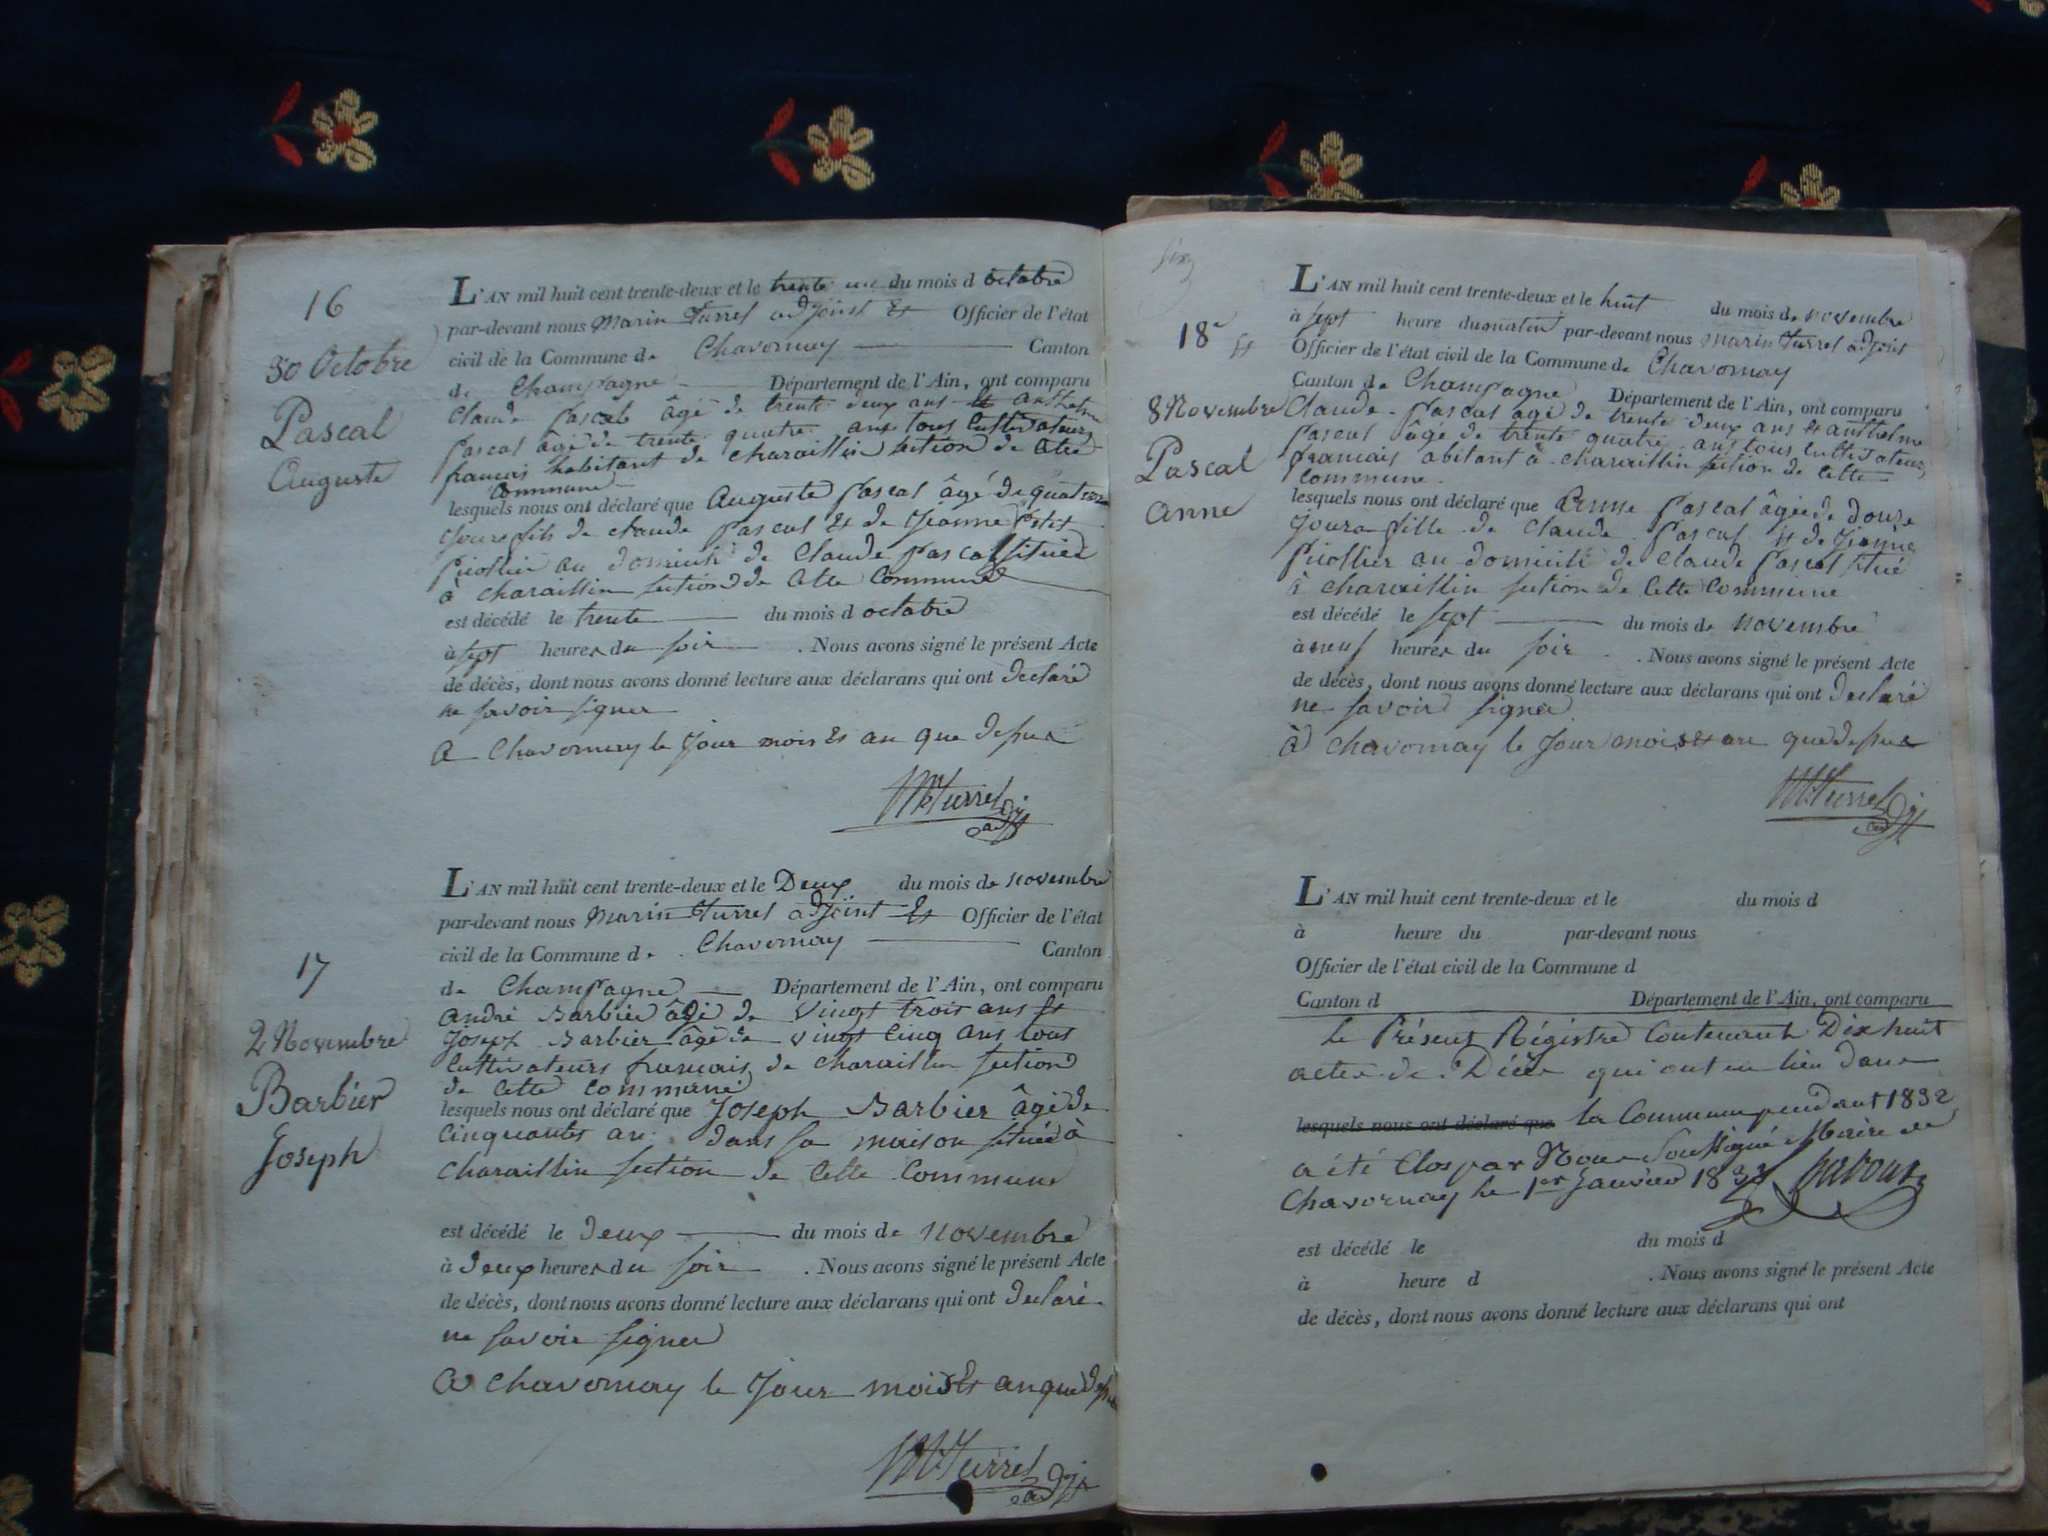 16
30 Octobre
Pascal
Auguste
L'AN mil huit cent trente-deux et le trente un du mois d octobre
par-devant nous Marin Turrel adjoint et Officier de l'état
civil de la Commune de Chavornay Canton
de Champagne Département de l'Ain, ont comparu
Claude Pascal âgé de trente deux ans et anthelme
Pascal âgé de trente quatre ans tous Cultivateurs
francais habitant de charaillin section de cette
Commune
lesquels nous ont déclaré que Auguste Pascal âgé de quatre
jours fils de claude Pascal et de Jeanne
au domicile de Claude Pascal située
à charaillin section de cette Commune
est décédé le trente du mois d octobre
à sept heures du soir . Nous avons signé le présent Acte
de décès, dont nous avons donné lecture aux déclarans qui ont declaré
ne savoir signer
A Chavornay le Jour mois et an que dessus
M Turrel adjt
17
2 Novembre
Barbier
Joseph
L'AN mil huit cent trente-deux et le Deux du mois de novembre
par-devant nous Marin Turrel adjoint et Officier de l'état
civil de la Commune de Chavornay Canton
de Champagne Département de l'Ain, ont comparu
André Barbier âgé de vingt trois ans et
Joseph Barbier âgé de vingt cinq ans tous
Cultivateurs francais de charaillin section
de cette commune
lesquels nous ont déclaré que Joseph Barbier âgé de
cinquante an dans sa maison située à
Charaillin section de cette Commune
est décédé le deux du mois de novembre
à deux heures du soir . Nous avons signé le présent Acte
de décès, dont nous avons donné lecture aux déclarans qui ont declaré
ne savoir signer
A Chavornay le Jour mois et an que dessus
M Turrel adjt
18
8 Novembre
Pascal
Anne
L'AN mil huit cent trente-deux et le huit du mois de novembre
à sept heure du matin par-devant nous marin Turrel adjoint
et Officier de l'état civil de la Commune de Chavornay
Canton de Champagne Département de l'Ain, ont comparu
Claude Pascal âgé de trente deux ans et anthelme
Pascal âgé de trente quatre ans tous Cultivateurs
francais abitant à charaillin section de cette
Commune
lesquels nous ont déclaré que Anne Pascal âgée de douze
Jours fille de Claude Pascal et de Jeanne
au domicile de Claude Pascal situé
à charaillin section de cette Commune
est décédé le sept du mois de novembre
à neuf heures du soir . Nous avons signé le présent Acte
de décès, dont nous avons donné lecture aux déclarans qui ont declaré
ne savoir signer
A Chavornay le Jour mois et an que dessus
M Turrel adjt
L'AN mil huit cent trente-deux et le du mois d
à heure du par-devant nous
Officier de l'état civil de la Commune d
Canton d Département de l'Ain, ont comparu
le Présent Régistre Contenant Dix huit
actes de Décès qui ont eu lieu dans
lesquels nous ont déclaré que la Commune pendant 1832
a été Clos par Nous Soussigné Maire de
Chavornay le 1er Janvier 1833
est décédé le du mois d
à heure d . Nous avons signé le présent Acte
de décès, dont nous avons donné lecture aux déclarans qui ont